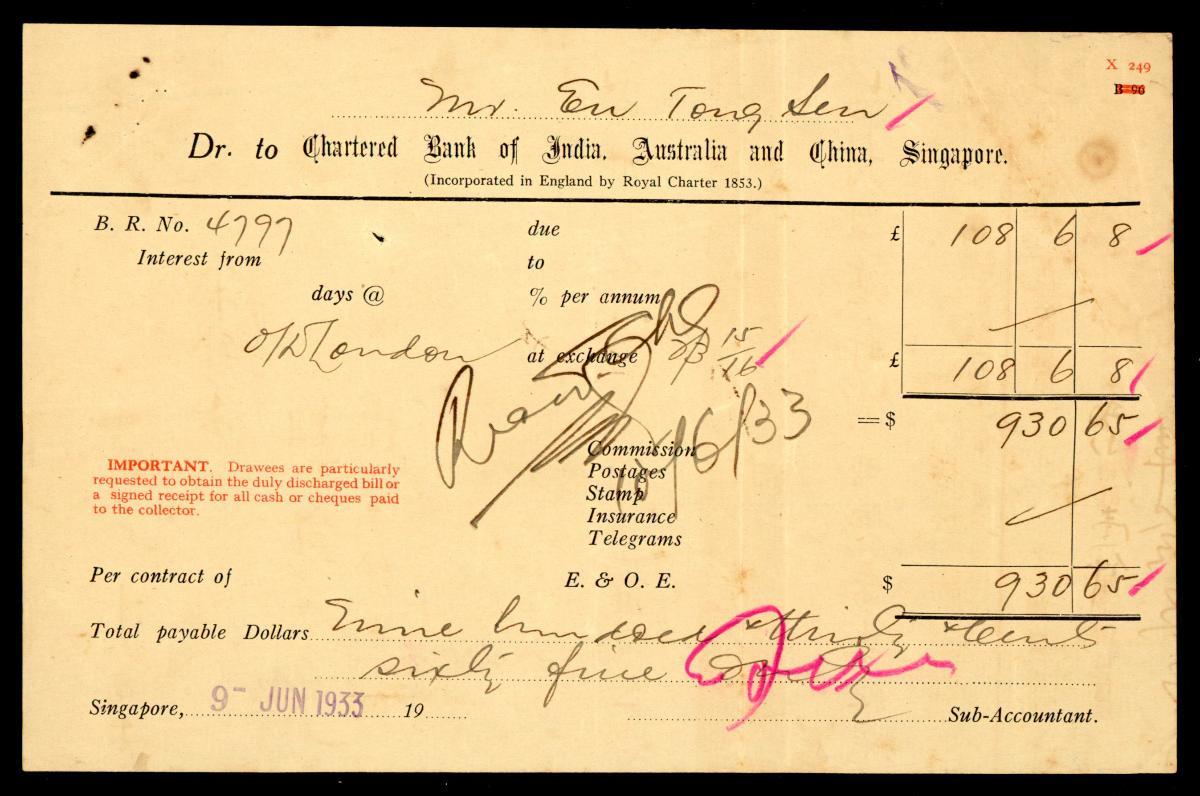 X 249
B 96
Mr. Eu Tong Sen
Dr. to Chartered Bank of India, Australia and China, Singapore.
(Incorporated in England by Royal Charter 1853.)
B. R. No. 4797 due £ 108 6 8
Interest from to
days @ % per annum
O/D London at exchange 2/3 15/16 £ 108 6 8
= $ 930 65
10/6/33
Commission
Postages
Stamp
Insurance
Telegrams
IMPORTANT. Drawees are particularly
requested to obtain the duly discharged bill or
a signed receipt for all cash or cheques paid
to the collector.
Per contract of E. & O. E. $ 930 65
Total payable Dollars Nine hundred & thirty & cents
sixty five only
Singapore, 9- JUN 1933 19 Sub-Accountant.